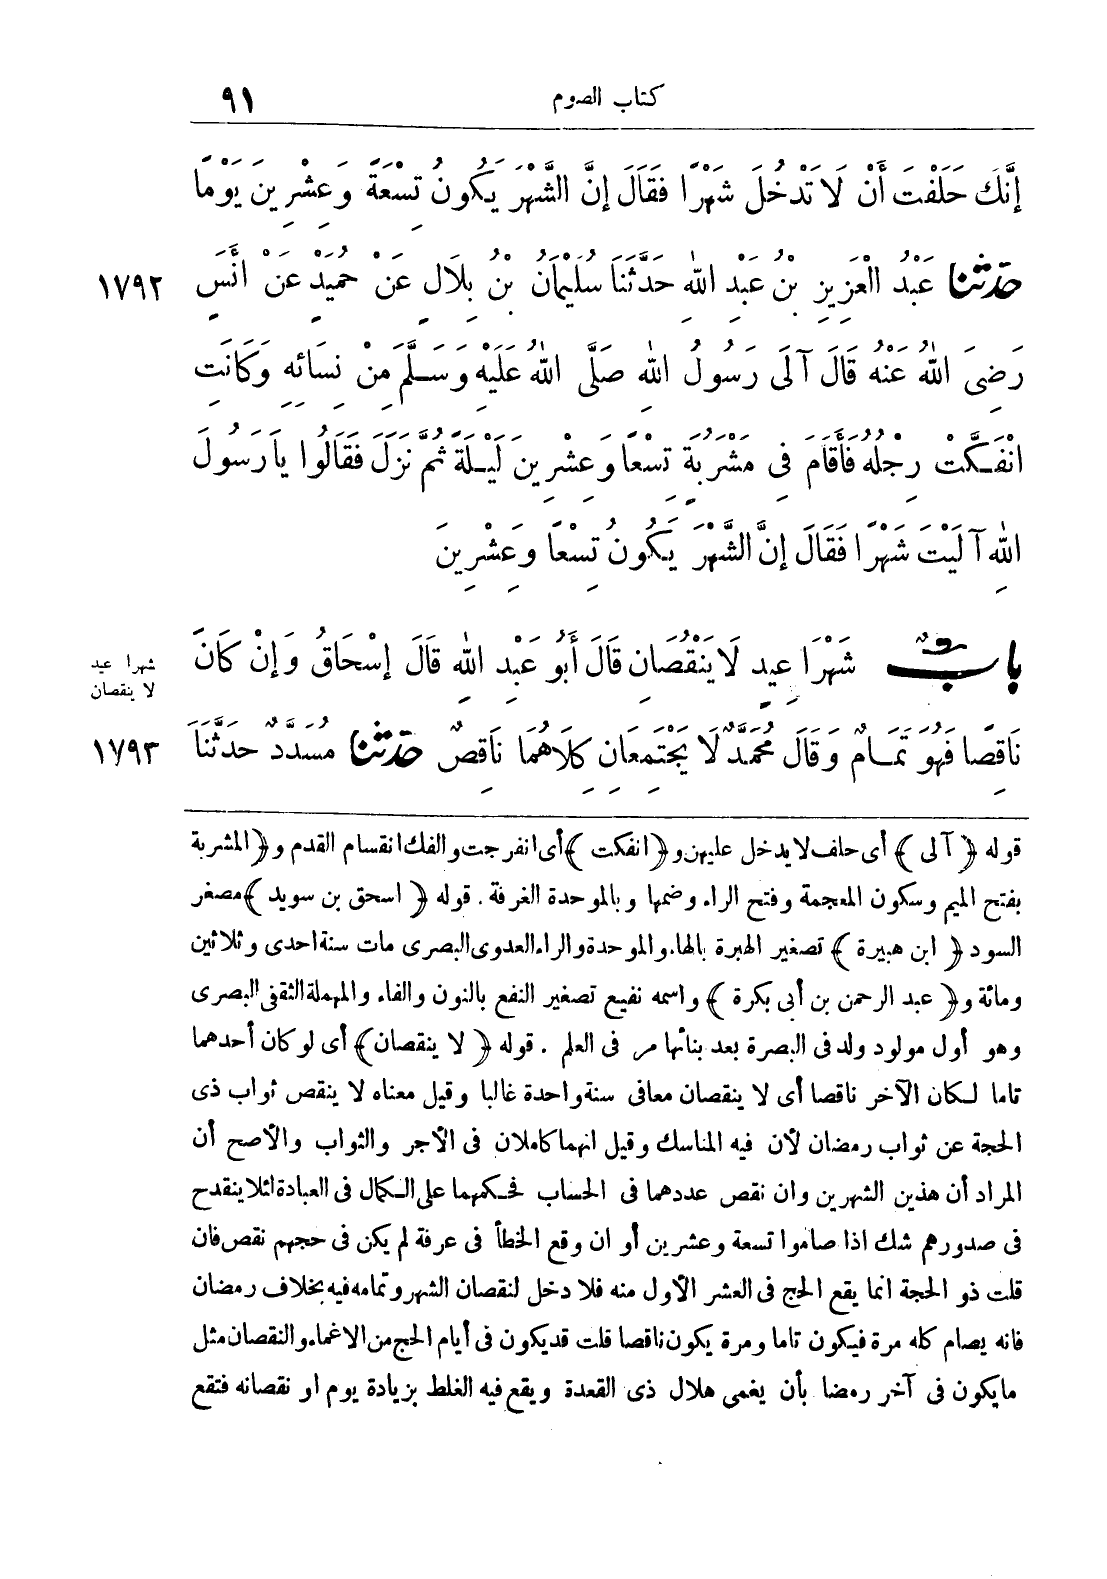 كتاب الصوم ٩١
إِنَّكَ حَلَفْتَ أَنْ لَا تَدْخُلَ شَهْرًا فَقَالَ إِنَّ الشَّهْرَ يَكُونُ تِسْعَةً وَعِشْرِينَ يَوْمًا
١٧٩٢ حَدَّثَنَا عَبْدُ الْعَزِيزِ بْنُ عَبْدِ اللهِ حَدَّثَنَا سُلَيْمَانُ بْنُ بِلَالٍ عَنْ حُمَيْدٍ عَنْ أَنَسٍ
رَضِىَ اللهُ عَنْهُ قَالَ آلَى رَسُولُ اللهِ صَلَّى اللهُ عَلَيْهِ وَسَلَّمَ مِنْ نِسَائِهِ وَكَانَتِ
انْفَكَّتْ رِجْلُهُ فَأَقَامَ فِى مَشْرُبَةٍ تِسْعًا وَعِشْرِينَ لَيْلَةً ثُمَّ نَزَلَ فَقَالُوا يَا رَسُولَ
اللهِ آلَيْتَ شَهْرًا فَقَالَ إِنَّ الشَّهْرَ يَكُونُ تِسْعًا وَعِشْرِينَ
شهرا عيد
لا ينقصان
بَابٌ شَهْرَا عِيدٍ لَا يَنْقُصَانِ قَالَ أَبُو عَبْدِ اللهِ قَالَ إِسْحَاقُ وَإِنْ كَانَ
١٧٩٣ نَاقِصًا فَهُوَ تَمَامٌ وَقَالَ مُحَمَّدٌ لَا يَجْتَمِعَانِ كِلَاهُمَا نَاقِصٌ حَدَّثَنَا مُسَدَّدٌ حَدَّثَنَا
قوله ﴿آلى﴾ أى حلف لا يدخل عليهن و﴿انفكت﴾ أى انفرجت والفك انقسام القدم و﴿المشربة
بفتح الميم وسكون المعجمة وفتح الراء وضمها وبالموحدة الغرفة. قوله ﴿اسحق بن سويد﴾ مصغر
السود ﴿ابن هبيرة﴾ تصغير الهبرة بالهاء والموحدة والراء العدوى البصرى مات سنة احدى وثلاثين
ومائة و﴿عبد الرحمن بن أبى بكرة﴾ واسمه نفيع تصغير النفع بالنون والفاء والمهملة الثقفى البصرى
وهو أول مولود ولد فى البصرة بعد بنائها مر فى العلم . قوله ﴿لا ينقصان﴾ أى لو كان أحدهما
تاما لكان الآخر ناقصا أى لا ينقصان معا فى سنة واحدة غالبا وقيل معناه لا ينقص ثواب ذى
الحجة عن ثواب رمضان لأن فيه المناسك وقيل انهما كاملان فى الأجر والثواب والأصح أن
المراد أن هذين الشهرين وان نقص عددهما فى الحساب فحكمهما على الكمال فى العبادة لئلا ينقدح
فى صدورهم شك اذا صاموا تسعة وعشرين أو ان وقع الخطأ فى عرفة لم يكن فى حجهم نقص فان
قلت ذو الحجة انما يقع الحج فى العشر الأول منه فلا دخل لنقصان الشهر وتمامه فيه بخلاف رمضان
فانه يصام كله مرة فيكون تاما ومرة يكون ناقصا قلت قد يكون فى أيام الحج من الاغماء والنقصان مثل
ما يكون فى آخر رمضا بأن يغمى هلال ذى القعدة ويقع فيه الغلط بزيادة يوم او نقصانه فتقع